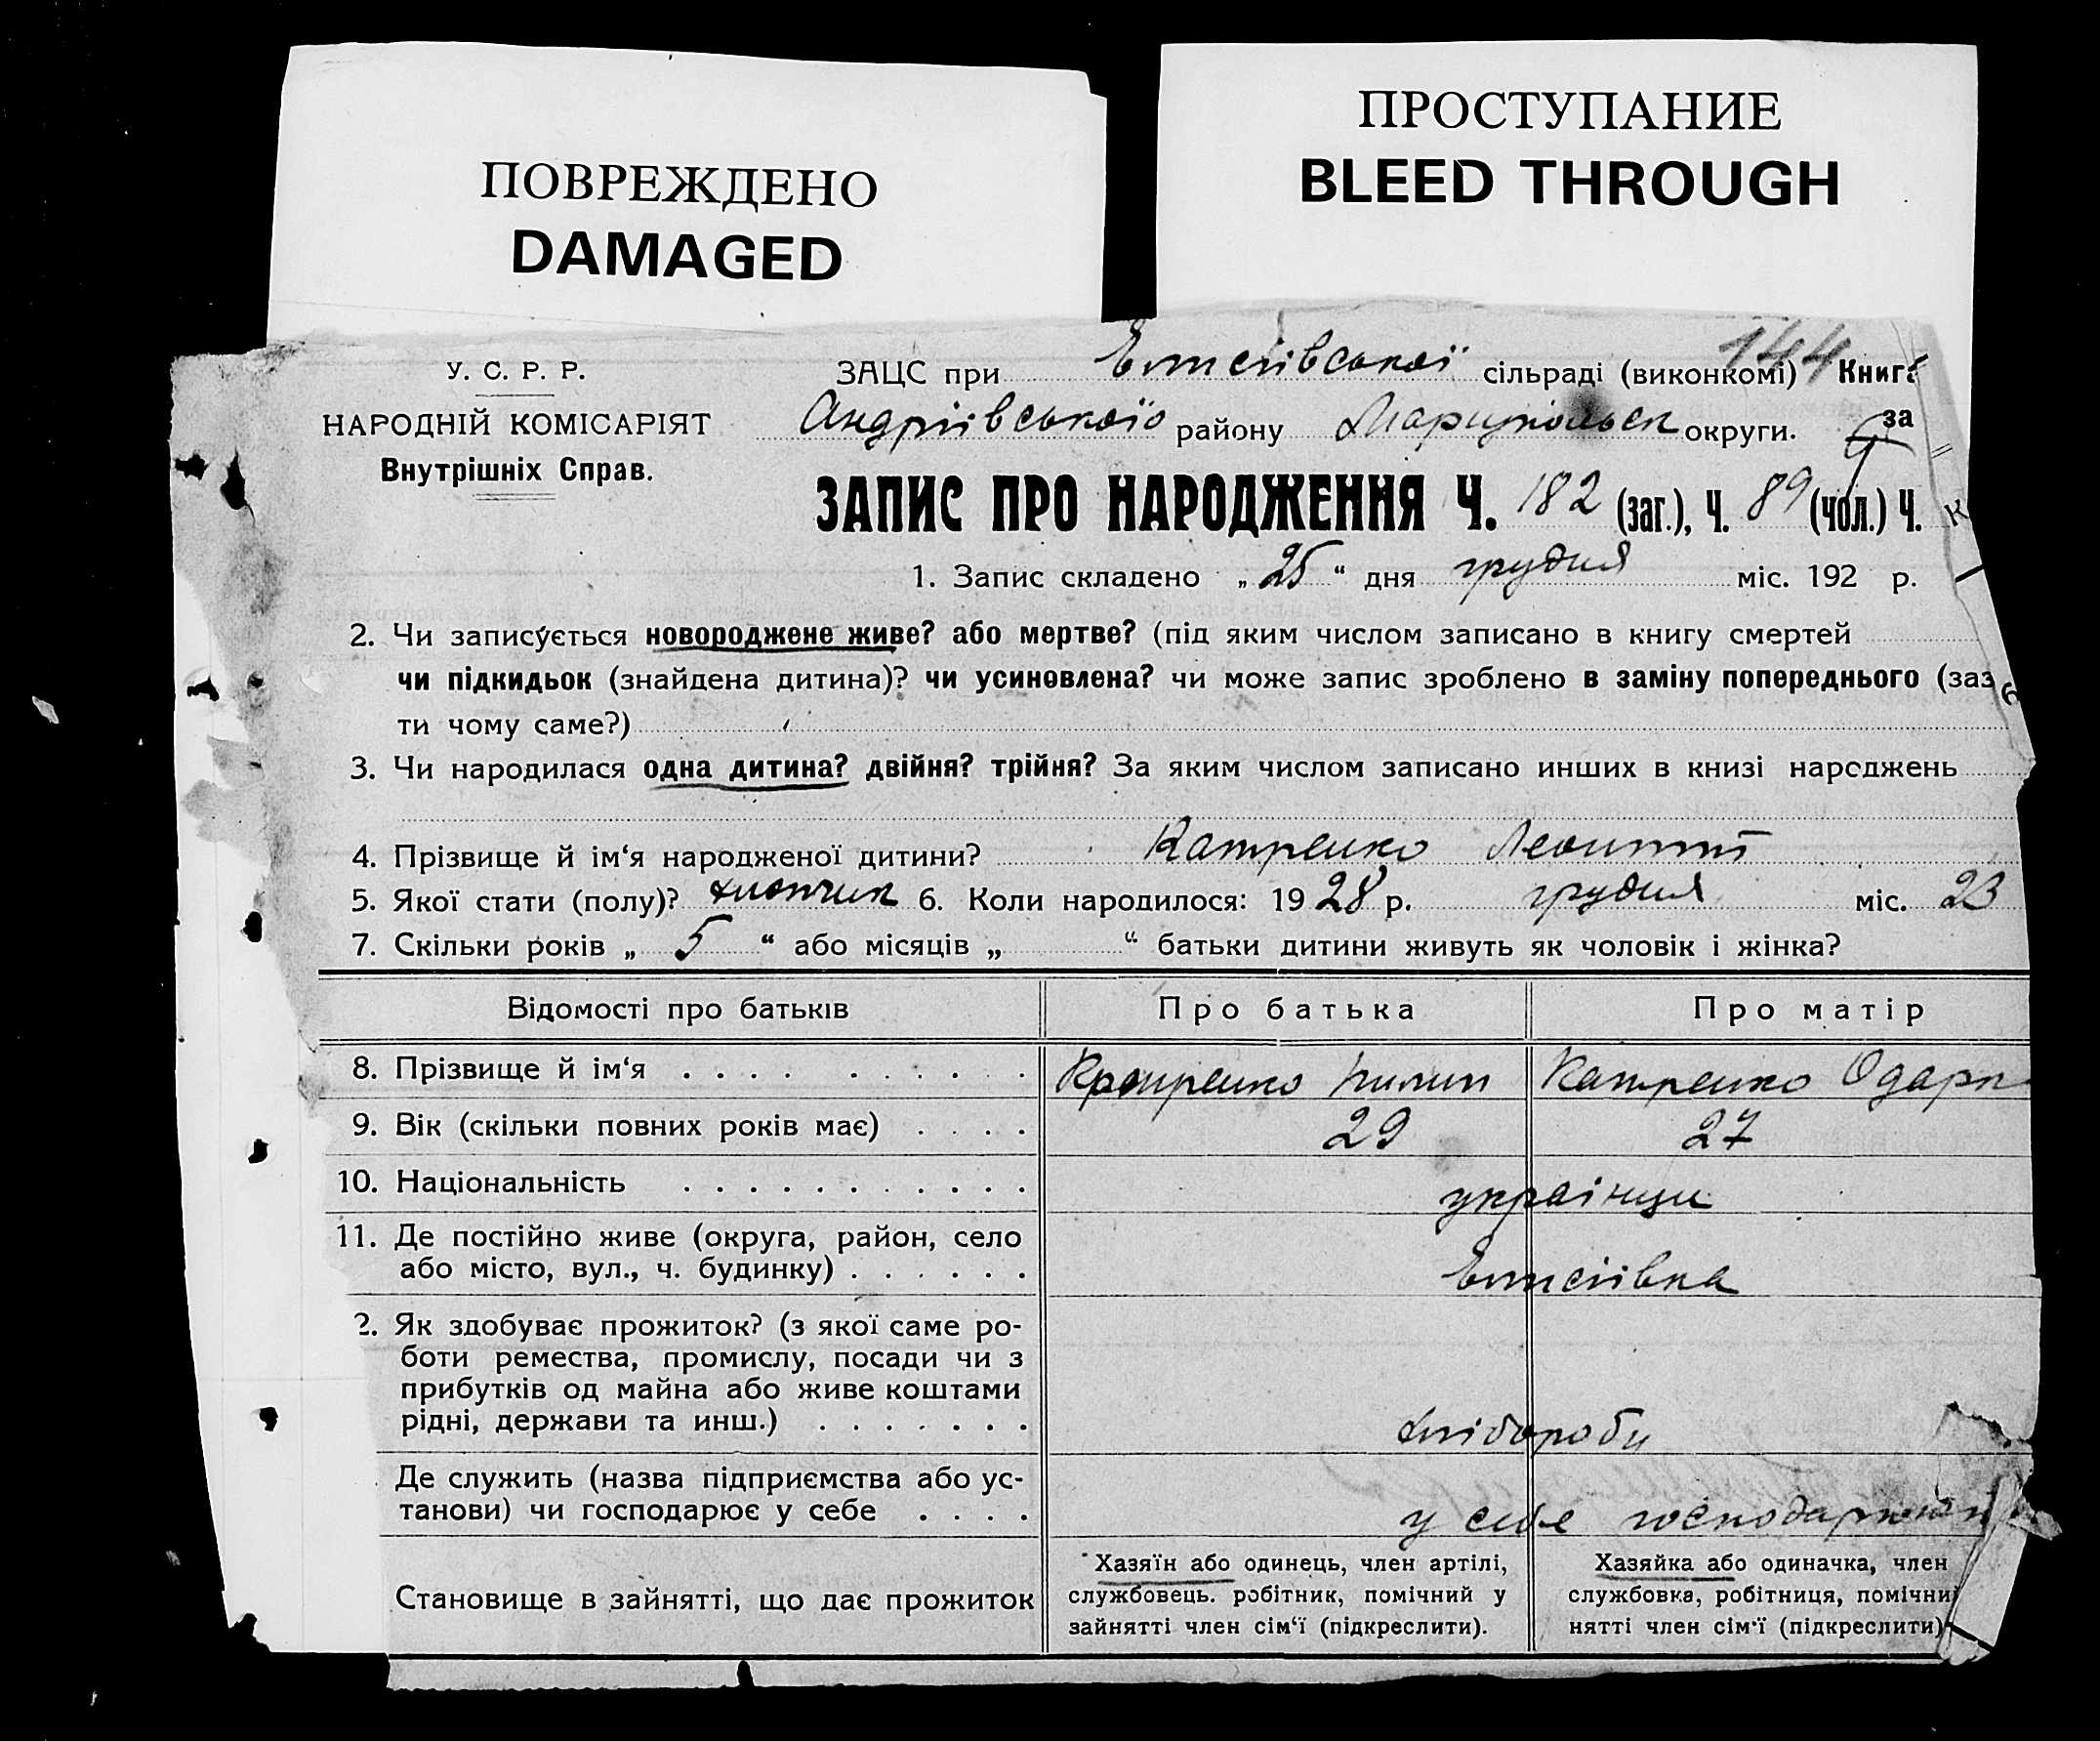 ПОВРЕЖДЕНО
DAMAGED
ПРОСТУПАНИЕ
BLEED THROUGH
144
У. С. Р. Р.
НАРОДНІЙ КОМІСАРІЯТ
Внутрішніх Справ.
ЗАЦС при Єлисеївської сільраді (виконкомі) Книга
Андріївського району Маріупольськ округи. за
ЗАПИС ПРО НАРОДЖЕННЯ Ч. 182 (заг.), Ч. 89 (чол.) Ч.
1. Запис складено „ 25 “ дня грудня міс. 192 р.
2. Чи записується новороджене живе? або мертве? (під яким числом записано в книгу смертей
чи підкидьок (знайдена дитина)? чи усиновлена? чи може запис зроблено в заміну попереднього (заз
ти чому саме?)
3. Чи народилася одна дитина? двійня? трійня? За яким числом записано инших в книзі народжень
4. Прізвище й ім‘я народженої дитини? Катренко Леонтій
5. Якої стати (полу)? хлопчик 6. Коли народилося: 1928 р. грудня міс. 23
7. Скільки років „ 5 “ або місяців „ “ батьки дитини живуть як чоловік і жінка?
Відомості про батьків Про батька Про матір
8. Прізвище й ім‘я Катренко Пилип Катренко Одарк
9. Вік (скільки повних років має) 29 27
10. Національність українци
11. Де постійно живе (округа, район, село
або місто, вул., ч. будинку) Єлисеївка
2. Як здобуває прожиток? (з якої саме ро-
боти ремества, промислу, посади чи з
прибутків од майна або живе коштами
рідні, держави та инш.) хлібороби
Де служить (назва підприємства або ус-
танови) чи господарює у себе у себе господарюют
Становище в зайнятті, що дає прожиток
Хазяїн або одинець, член артілі,
службовець. робітник, помічний у
зайнятті член сім‘ї (підкреслити).
Хазяйка або одиначка, член
службовка, робітниця, помічни
нятті член сім‘ї (підкреслити)